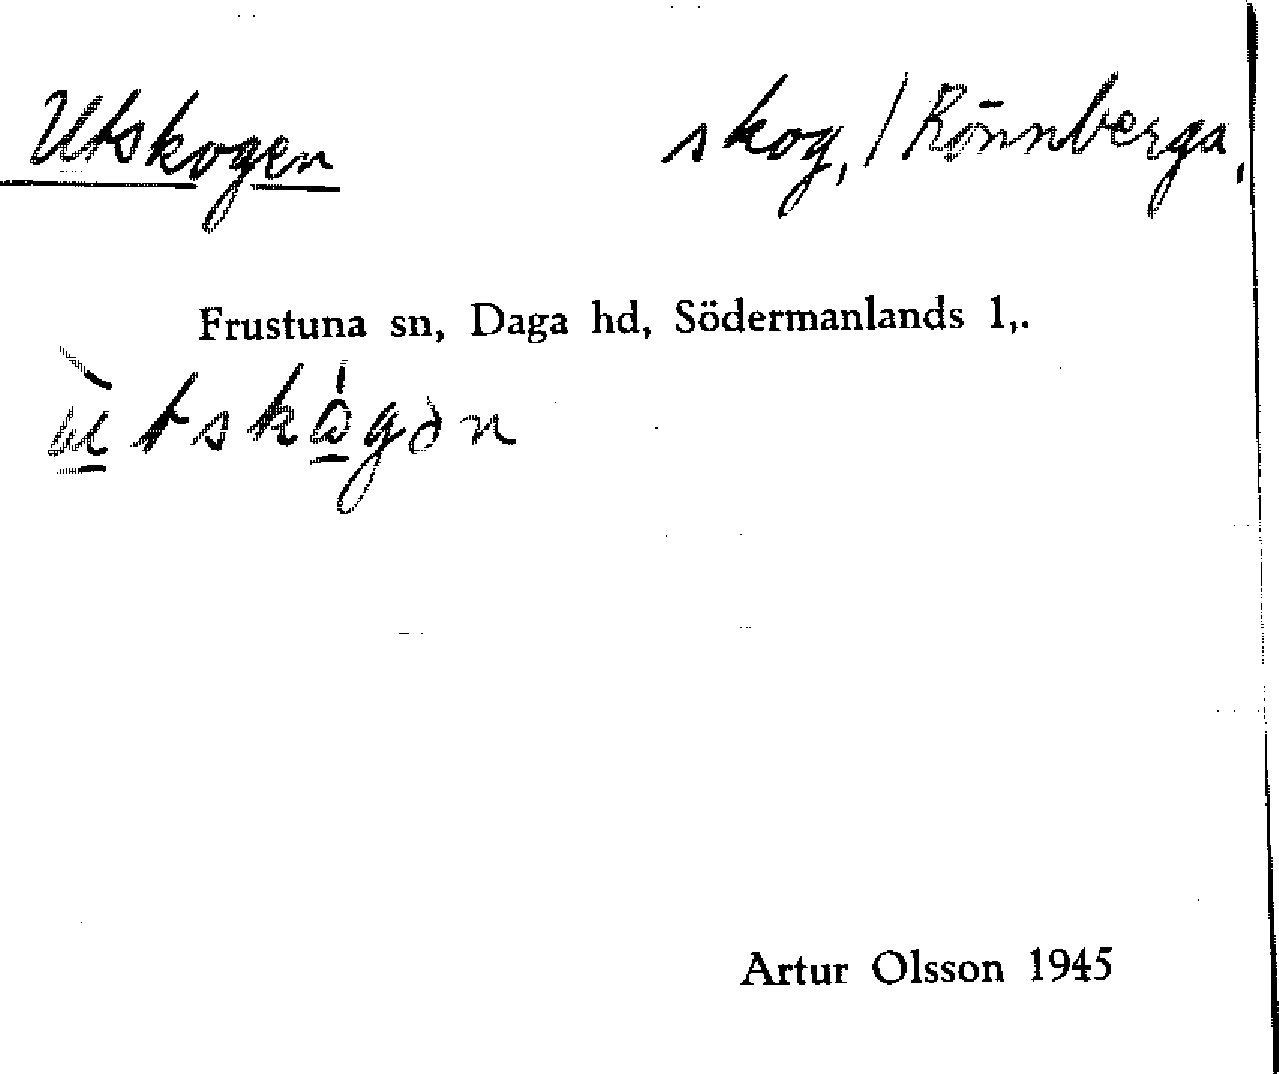 Utskogen skog, / Rönnberga,
Frustuna sn, Daga hd, Södermanlands l,.
ùtskògən
Artur Olsson 1945